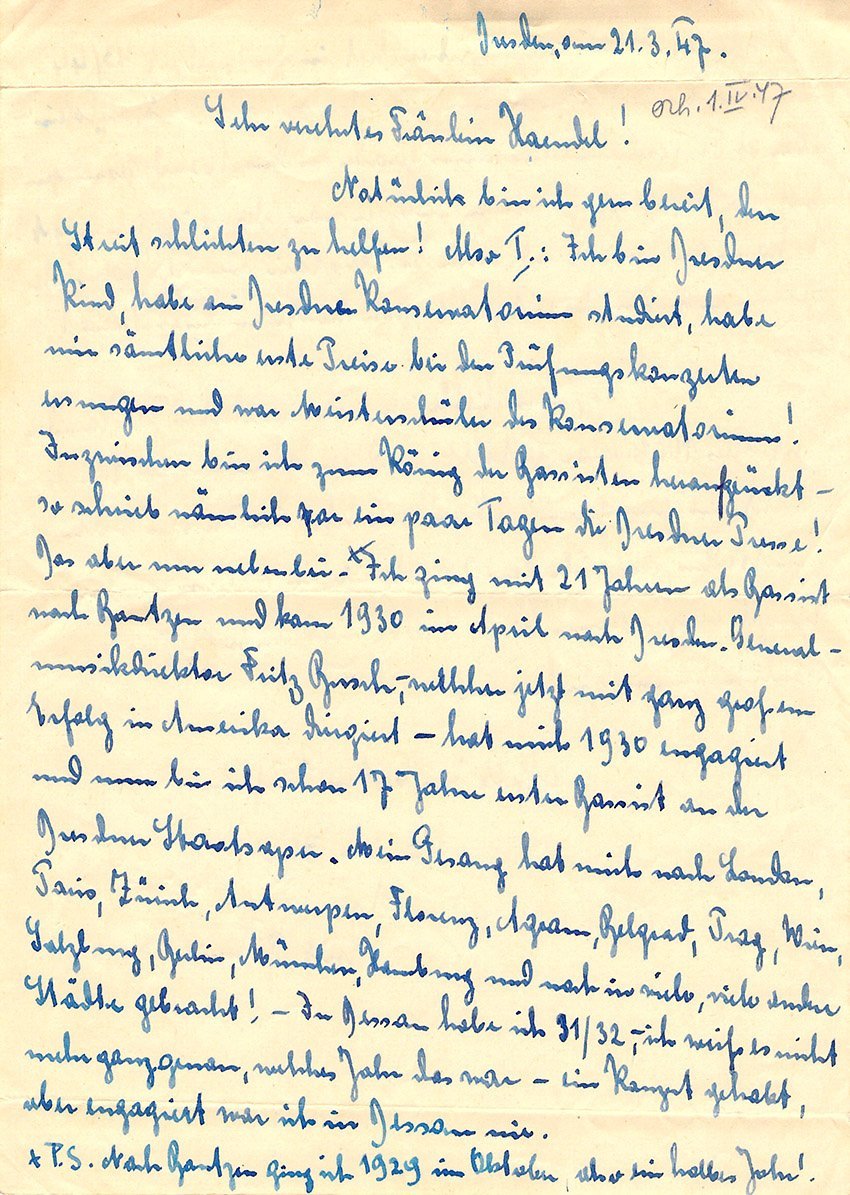 Dresden, am 21.3.47.
erh. 1.IV.47
Sehr verehrtes Fräulein Haendel!
Natürlich bin ich gern bereit, den
Streit schlichten zu helfen! Also I.: Ich bin Dresdner
Kind, habe am Dresdner Konservatorium studiert, habe
mir sämtliche erste Preise bei den Prüfungskonzerten
ersungen und war Meisterschüler des Konservatoriums!
Inzwischen bin ich zum König der Bassisten heraufgerückt –
so schrieb nämlich vor ein paar Tagen die Dresdner Presse!
Das aber nur nebenbei. – x Ich ging mit 21 Jahren als Bassist
nach Bautzen und kam 1930 im April nach Dresden. General-
musikdirektor Fritz Busch –, welcher jetzt mit ganz großem
Erfolg in Amerika dirigiert – hat mich 1930 engagiert
und nun bin ich schon 17 Jahre erster Bassist an der
Dresdner Staatsoper. Mein Gesang hat mich nach London,
Paris, Zürich, Antwerpen, Florenz, Agram, Belgrad, Prag, Wien,
Salzburg, Berlin, München, Hamburg und noch in viele, viele andere
Städte gebracht! – In Dessau habe ich 31/32 –, ich weiß es nicht
mehr ganz genau, welches Jahr das war – ein Konzert gehabt,
aber engagiert war ich in Dessau nie.
x P.S. Nach Bautzen ging ich 1929 im Oktober, also ein halbes Jahr!